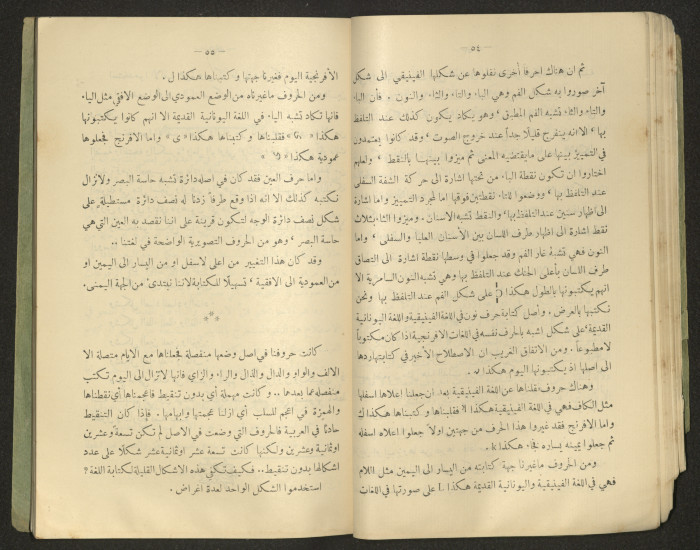 — ٥٤ —
ثم ان هناك احرفا أخرى نقلوها عن شكلها الفينيقي الى شكل
آخر صوروا به شكل الفم وهي الباء والتاء والثاء والنون . فأن الباء
والتاء والثاء تشبه الفم المطبق ، وهو يكاد يكون كذلك عند التلفظ
بها ، الا انه ينفرج قليلاً جداً عند خروج الصوت ، وقد كانوا يعتمدون
في التمييز بينها على ما يقتضيه المعنى ثم ميزوا بينها بالنقط ، ولعلهم
اختاروا ان تكون نقطة الباء من تحتها اشارة الى حركة الشفة السفلى
عند التلفظ بها ، ووضعوا للتاء نقطتين فوقها اما لمجرد التمييز واما اشارة
الى اظهار سنين عند التلفظ بها ، والنقط تشبه الاسنان . وميزوا الثاء بثلاث
نقط اشارة الى اظهار طرف اللسان بين الأسنان العليا والسفلى ، واما
النون فهي تشبه غار الفم وقد جعلوا في وسطها نقطة اشارة الى التصاق
طرف اللسان بأعلى الحنك عند التلفظ بها وهي تشبه النون السامرية الا
انهم يكتبونها بالطول هكذا على شكل الفم عند التلفظ بها ونحن
نكتبها بالعرض . وأصل كتابة حرف نون في اللغة الفينيقية واللغة اليونانية
القديمة على شكل اشبه بالحرف نفسه في اللغات الافرنجية اذا كان مكتوباً
لا مطبوعاً . ومن الاتفاق الغريب ان الاصطلاح الأخير في كتابتها ردها
الى اصلها اذ يكتبونها اليوم هكذا
وهناك حروف نقلناها عن اللغة الفينيقية بعد ان جعلنا اعلاها اسفلها
مثل الكاف فهي في اللغة الفينيقية هكذا فقلبناها وكتبناها هكذا ك
واما الافرنج فقد غيروا هذا الحرف من جهتين اولاً جعلوا اعلاه اسفله
ثم جعلوا يمينه يساره فجاء هكذا
ومن الحروف ما غيرنا جهة كتابته من اليسار الى اليمين مثل اللام
فهي في اللغة الفينيقية واليونانية القديمة هكذا L على صورتها في اللغات
— ٥٥ —
الأفرنجية اليوم فغيرنا جهتها وكتبناها هكذا ل .
ومن الحروف ما غيرناه من الوضع العمودي الى الوضع الافقي مثل الياء
فانها تكاد تشبه الياء في اللغة اليونانية القديمة الا انهم كانوا يكتبونها
هكذا فقلبناها وكتبناها هكذا « ى » واما الافرنج فجعلوها
عمودية هكذا
واما حرف العين فقد كان في اصله دائرة تشبه حاسة البصر ولا نزال
نكتبه كذلك الا انه اذا وقع طرفاً زدنا له نصف دائرة مستطيلة على
شكل نصف دائرة الوجه لتكون قرينة على اننا نقصد به العين التي هي
حاسة البصر ، وهو من الحروف التصويرية الواضحة في لغتنا ..
وقد كان هذا التغيير من اعلى لاسفل او من اليسار الى اليمين او
من العمودية الى الافقية ، تسهيلاً للكتابة لاننا نبتدئ من الجهة اليمنى.
***
كانت حروفنا في اصل وضعها منفصلة فجعلناها مع الايام متصلة الا
الالف والواو والدال والذال والراء والزاي فانها لا تزال الى اليوم تكتب
منفصلة عما بعدها .. وكانت مهملة أي بدون تنقيط فاعجمناها أي نقطناها
والهمزة في اعجم للسلب أي ازلنا عجمتها وابهامها . فإذا كان التنقيط
حادثاً في العربية فالحروف التي وضعت في الاصل لم تكن تسعة وعشرين
او ثمانية وعشرين ولكنها كانت تسعة عشر او ثمانية عشر شكلاً على عدد
اشكالها بدون تنقيط .. فكيف تكفي هذه الاشكال القليلة لكتابة اللغة ؟
استخدموا الشكل الواحد لعدة اغراض .